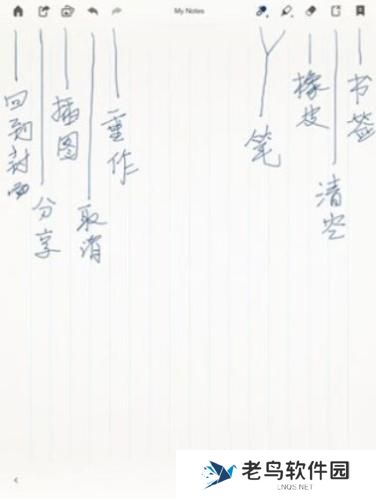 My Notes
回到封面
分享
插图
取消
重作
笔
橡皮
清空
书签
老鸟软件园
LNQS.NET